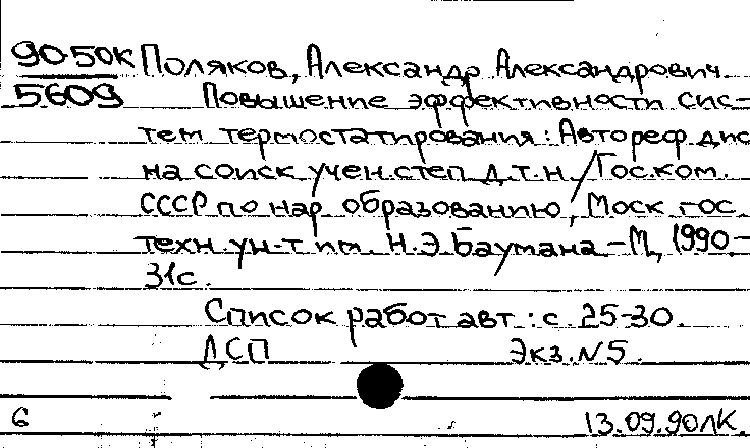 90-50К Поляков, Александр Александрович.
5609 Повышение эффективности сис-
тем термостатирования: Автореф дис
на соиск учен.степ д.т.н./Гос.ком.
СССР по нар образованию, Моск гос.
техн.ун-т им. Н.Э.Баумана.-М, 1990.-
31с.
Список работ авт.: с 25-30.
ДСП Экз.N5.
6 13.09.90ЛК.